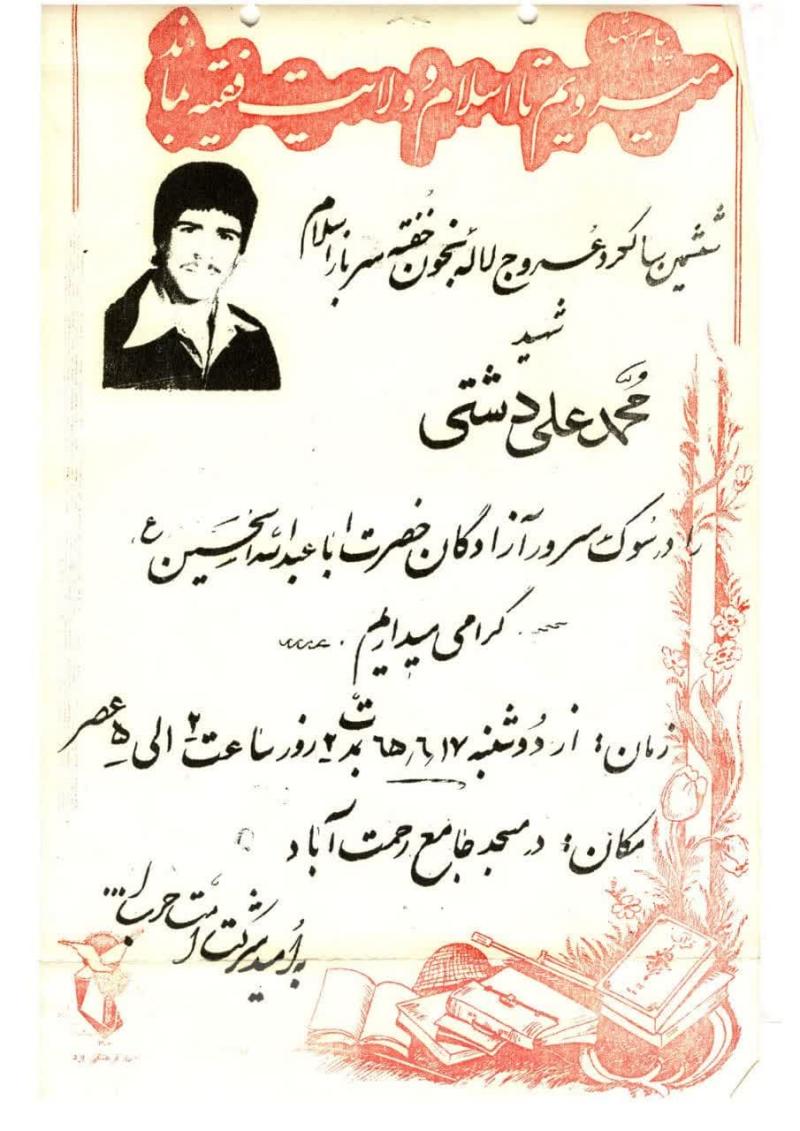 پیام شهدا
میرویم تا اسلام و ولایت فقیه بماند
ششمین سالگرد عروج لاله بخون خفته سرباز اسلام
شهید
محمد علی دشتی
را در سوک سرور آزادگان حضرت ابا عبدالله الحسین ع
گرامی میداریم
زمان: از دوشنبه ۶۵/۶/۱۷ بمدت ۲ روز ساعت ۲ الی ۵ عصر
مکان: در مسجد جامع رحمت آباد
به امید شرکت امت حزب ا...